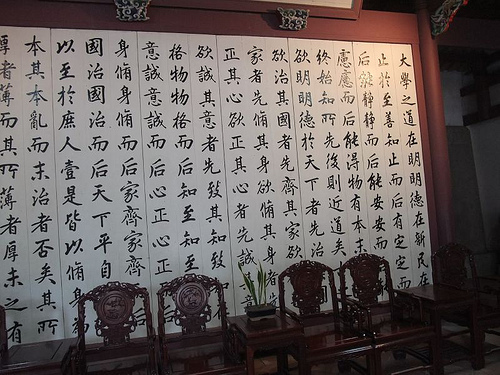 大學之道在明明德在新民在
止於至善知止而后有定定
后能靜靜而后能安安而
慮慮而后能得物有本末
終始知所先後則近道矣
欲明明德於天下者先治
欲治其國者先齊其家欲
家者先脩其身欲脩其身
正其心欲正其心者先誠
欲誠其意者先致其知
格物物格而后知至知至
意誠意誠而后心正心正
身脩身脩而后家齊家齊
國治國治而后天下平自
以至於庶人壹是皆以脩身為
本其本亂而末治者否矣其所
厚者薄而其所薄者厚未之有